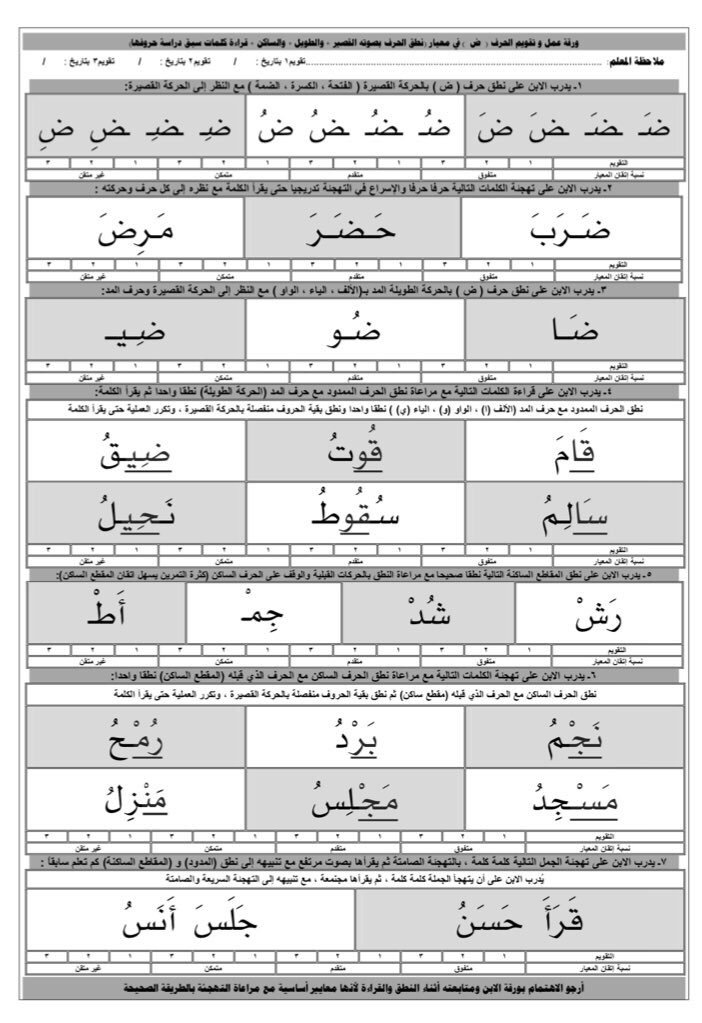 ورقة عمل و تقويم الحرف ( ض ) في معيار (نطق الحرف بصوته القصير - والطويل - والساكن - قراءة كلمات سبق دراسة حروفها)
ملاحظة المعلم: ........ تقويم١ بتاريخ : / تقويم٢ بتاريخ : / تقويم٣ بتاريخ : /
١ـ يدرب الابن على نطق حرف ( ض ) بالحركة القصيرة ( الفتحة ، الكسرة ، الضمة ) مع النظر إلى الحركة القصيرة:
ضَـ ـضَـ ـضَ ضَ ضُـ ـضُـ ـضُ ضُ ضِـ ـضِـ ـضِ ضِ
التقويم ١ ٢ ٣ ١ ٢ ٣ ١ ٢ ٣ ١ ٢ ٣
نسبة إتقان المعيار متفوق متقدم متمكن غير متقن
٢ـ يدرب الابن على تهجئة الكلمات التالية حرفا حرفا والإسراع في التهجئة تدريجيا حتى يقرأ الكلمة مع نظره إلى كل حرف وحركته :
ضَـرَبَ حَـضَـرَ مَـرِضَ
التقويم ١ ٢ ٣ ١ ٢ ٣ ١ ٢ ٣ ١ ٢ ٣
نسبة إتقان المعيار متفوق متقدم متمكن غير متقن
٣ـ يدرب الابن على نطق حرف ( ض ) بالحركة الطويلة المد بـ(الألف ، الياء ، الواو ) مع النظر إلى الحركة القصيرة وحرف المد:
ضَـا ضُـو ضِـيـ
التقويم ١ ٢ ٣ ١ ٢ ٣ ١ ٢ ٣ ١ ٢ ٣
نسبة إتقان المعيار متفوق متقدم متمكن غير متقن
٤ـ يدرب الابن على قراءة الكلمات التالية مع مراعاة نطق الحرف الممدود مع حرف المد (الحركة الطويلة) نطقا واحدا ثم يقرأ الكلمة:
نطق الحرف الممدود مع حرف المد (الألف (ا) ، الواو (و) ، الياء (ي) ) نطقا واحدا ونطق بقية الحروف منفصلة بالحركة القصيرة ، وتكرر العملية حتى يقرأ الكلمة
قَامَ قُوتُ ضِيـقُ
سَالِمُ سُـقُوطُ نَـحِيـلُ
التقويم ١ ٢ ٣ ١ ٢ ٣ ١ ٢ ٣ ١ ٢ ٣
نسبة إتقان المعيار متفوق متقدم متمكن غير متقن
٥ـ يدرب الابن على نطق المقاطع الساكنة التالية نطقا صحيحا مع مراعاة النطق بالحركات القبلية والوقف على الحرف الساكن (كثرة التمرين يسهل اتقان المقطع الساكن):
رَشْ شُدْ جِمْـ أَطْ
التقويم ١ ٢ ٣ ١ ٢ ٣ ١ ٢ ٣ ١ ٢ ٣
نسبة إتقان المعيار متفوق متقدم متمكن غير متقن
٦ـ يدرب الابن على تهجئة الكلمات التالية مع مراعاة نطق الحرف الساكن مع الحرف الذي قبله (المقطع الساكن) نطقا واحدا:
نطق الحرف الساكن مع الحرف الذي قبله (مقطع ساكن) ثم نطق بقية الحروف منفصلة بالحركة القصيرة ، وتكرر العملية حتى يقرأ الكلمة
نَجْـمُ بَرْدُ رُمْـحُ
مَسْـجِدُ مَـجْـلِسُ مَنْزِلُ
التقويم ١ ٢ ٣ ١ ٢ ٣ ١ ٢ ٣ ١ ٢ ٣
نسبة إتقان المعيار متفوق متقدم متمكن غير متقن
٧ـ يدرب الابن على تهجئة الجمل التالية كلمة كلمة ، بالتهجئة الصامتة ثم يقرأها بصوت مرتفع مع تنبيهه إلى نطق (المدود) و (المقاطع الساكنة) كم تعلم سابقاً :
يُدرب الابن على أن يتهجأ الجملة كلمة كلمة ، ثم يقرأها مجتمعة ، مع تنبيهه إلى التهجئة السريعة والصامتة
قَرَأَ حَسَنُ جَلَسَ أَنَسُ
التقويم ١ ٢ ٣ ١ ٢ ٣ ١ ٢ ٣ ١ ٢ ٣
نسبة إتقان المعيار متفوق متقدم متمكن غير متقن
أرجو الاهتمام بورقة الابن ومتابعته أثناء النطق والقراءة لأنها معايير أساسية مع مراعاة التهجئة بالطريقة الصحيحة